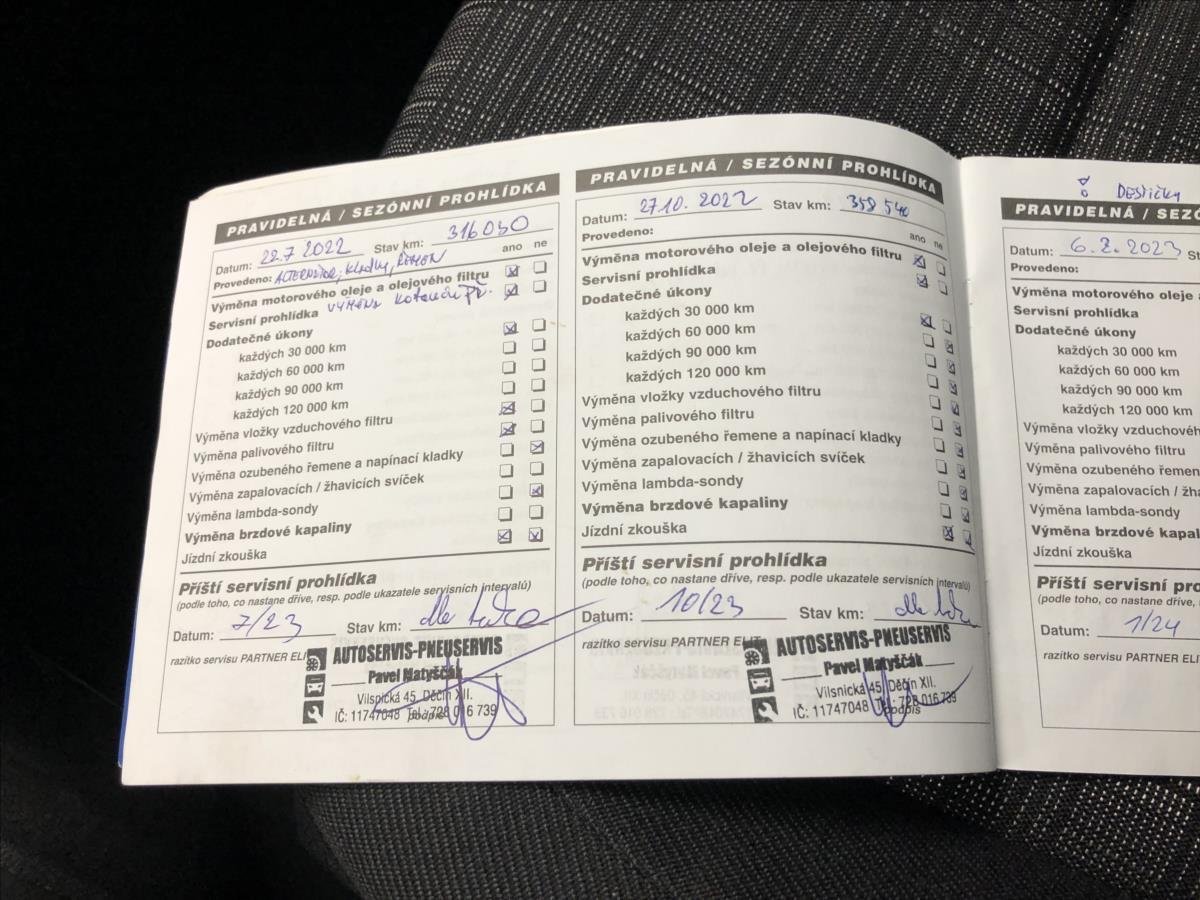 PRAVIDELNÁ / SEZÓNNÍ PROHLÍDKA
Datum: 22.7 2022 Stav km: 316050
Provedeno: ALTERNÁTOR, Kladky, ŘEMEN ano ne
Výměna motorového oleje a olejového filtru
Servisní prohlídka VÝMĚNA Kotoučů Př.
Dodatečné úkony
každých 30 000 km
každých 60 000 km
každých 90 000 km
každých 120 000 km
Výměna vložky vzduchového filtru
Výměna palivového filtru
Výměna ozubeného řemene a napínací kladky
Výměna zapalovacích / žhavicích svíček
Výměna lambda-sondy
Výměna brzdové kapaliny
Jízdní zkouška
Příští servisní prohlídka
(podle toho, co nastane dříve, resp. podle ukazatele servisních intervalů)
Datum: 7/23 Stav km: dle
razítko servisu PARTNER ELIT
AUTOSERVIS-PNEUSERVIS
Pavel Matyščák
Vilsnická 45, Děčín XII.
IČ: 11747048 Tel.: 728 016 739
podpis
PRAVIDELNÁ / SEZÓNNÍ PROHLÍDKA
Datum: 27.10. 2022 Stav km: 358 540
Provedeno: ano ne
Výměna motorového oleje a olejového filtru
Servisní prohlídka
Dodatečné úkony
každých 30 000 km
každých 60 000 km
každých 90 000 km
každých 120 000 km
Výměna vložky vzduchového filtru
Výměna palivového filtru
Výměna ozubeného řemene a napínací kladky
Výměna zapalovacích / žhavicích svíček
Výměna lambda-sondy
Výměna brzdové kapaliny
Jízdní zkouška
Příští servisní prohlídka
(podle toho, co nastane dříve, resp. podle ukazatele servisních intervalů)
Datum: 10/23 Stav km: dle
razítko servisu PARTNER ELIT
AUTOSERVIS-PNEUSERVIS
Pavel Matyščák
Vilsnická 45, Děčín XII.
IČ: 11747048 Tel.: 728 016 739
podpis
DESTIČKY
PRAVIDELNÁ / SEZÓ
Datum: 6.2. 2023
Provedeno:
Výměna motorového oleje a
Servisní prohlídka
Dodatečné úkony
každých 30 000 km
každých 60 000 km
každých 90 000 km
každých 120 000 km
Výměna vložky vzduchovéh
Výměna palivového filtru
Výměna ozubeného řemen
Výměna zapalovacích / žha
Výměna lambda-sondy
Výměna brzdové kapal
Jízdní zkouška
Příští servisní pro
(podle toho, co nastane dříve,
Datum: 1/24
razítko servisu PARTNER ELI